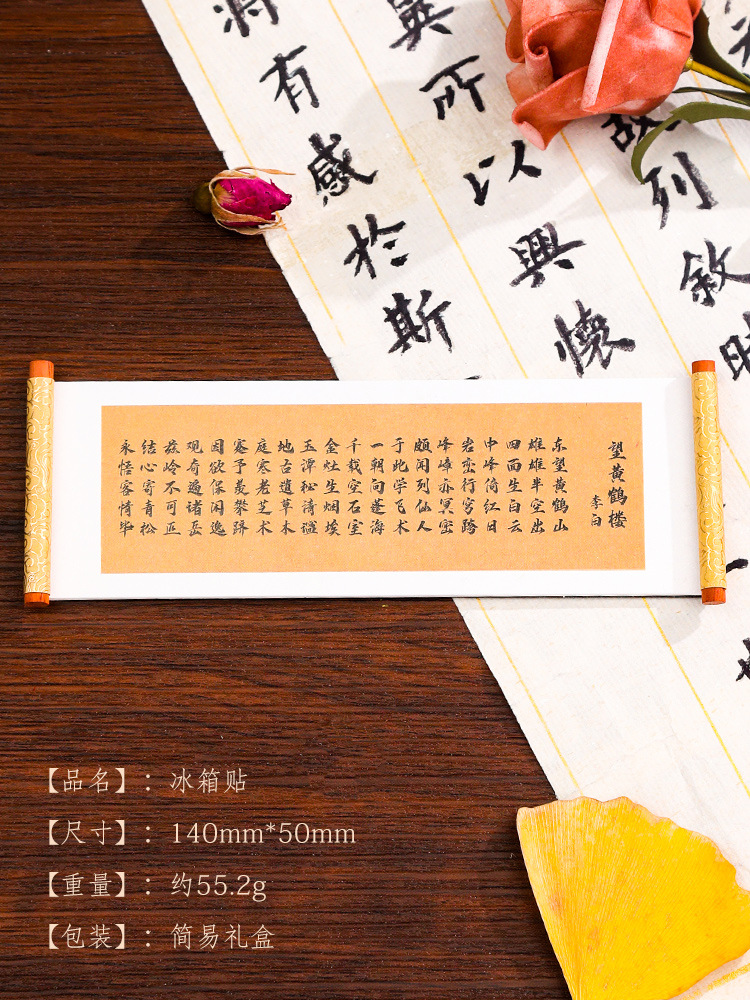 故列叙時
異所以興懷
将有感於斯
望黄鹤楼
李白
东望黄鹤山
雄雄半空出
四面生白云
中峰倚红日
岩峦行穹跨
峰嶂亦冥密
颇闻列仙人
于此学飞术
一朝向蓬海
千载空石室
金灶生烟埃
玉潭秘清谧
地古遗草木
庭寒老芝术
蹇予羡攀跻
因欲保闲逸
观奇遍诸岳
兹岭不可匹
结心寄青松
永悟客情毕
【品名】：冰箱贴
【尺寸】：140mm*50mm
【重量】：约55.2g
【包装】：简易礼盒